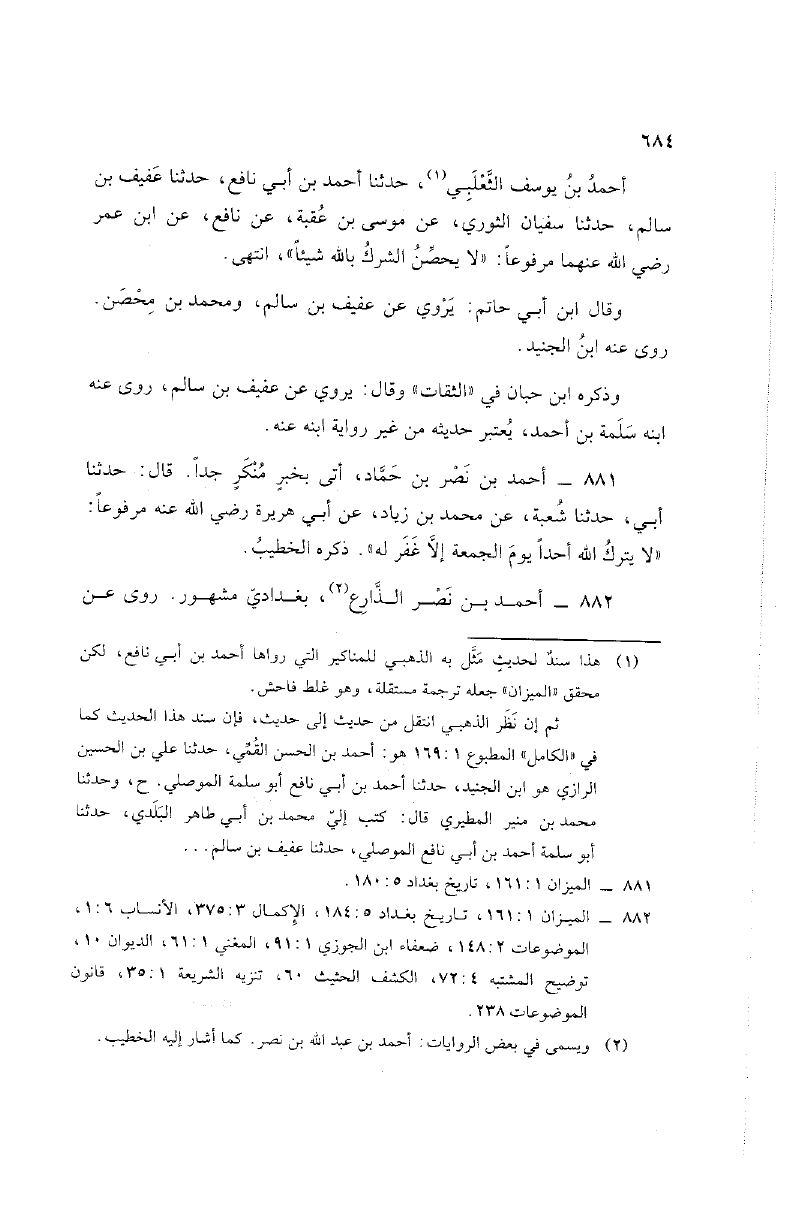 ٦٨٤
أحمدُ بنُ يوسف الثَّعْلَبِي(١)، حدثنا أحمد بن أبي نافع، حدثنا عَفيف بن
سالم، حدثنا سفيان الثوري، عن موسى بن عُقبة، عن نافع، عن ابن عمر
رضي الله عنهما مرفوعاً: «لا يحصِّنُ الشركُ بالله شيئاً»، انتهى.
وقال ابن أبي حاتم: يَرْوي عن عفيف بن سالم، ومحمد بن مِحْصَن.
روى عنه ابنُ الجنيد.
وذكره ابن حبان في «الثقات» وقال: يروي عن عفيف بن سالم، روى عنه
ابنه سَلَمة بن أحمد، يُعتبر حديثه من غير رواية ابنه عنه.
٨٨١ ـ أحمد بن نَصْر بن حَمَّاد، أتى بخبرٍ مُنْكَرٍ جداً. قال: حدثنا
أبي، حدثنا شُعبة، عن محمد بن زياد، عن أبي هريرة رضي الله عنه مرفوعاً:
«لا يتركُ الله أحداً يومَ الجمعة إلَّا غَفَر له». ذكره الخطيبُ.
٨٨٢ ـ أحمد بن نَصْر الذَّارِع(٢)، بغداديّ مشهور. روى عن
(١) هذا سندٌ لحديثٍ مَثَّل به الذهبي للمناكير التي رواها أحمد بن أبي نافع، لكن
محقق «الميزان» جعله ترجمة مستقلة، وهو غلط فاحش.
ثم إن نَظَر الذهبي انتقل من حديث إلى حديث، فإن سند هذا الحديث كما
في «الكامل» المطبوع ١:١٦٩ هو: أحمد بن الحسن القُمِّي، حدثنا علي بن الحسين
الرازي هو ابن الجنيد، حدثنا أحمد بن أبي نافع أبو سلمة الموصلي. ح، وحدثنا
محمد بن منير المطيري قال: كتب إليّ محمد بن أبي طاهر البَلَدي، حدثنا
أبو سلمة أحمد بن أبي نافع الموصلي، حدثنا عفيف بن سالم...
٨٨١ ـ الميزان ١:١٦١، تاريخ بغداد ٥:١٨٠.
٨٨٢ ـ الميزان ١:١٦١، تاريخ بغداد ٥:١٨٤، الإكمال ٣:٣٧٥، الأنساب ٦:١،
الموضوعات ٢:١٤٨، ضعفاء ابن الجوزي ١:٩١، المغني ١:٦١، الديوان ١٠،
توضيح المشتبه ٤:٧٢، الكشف الحثيث ٦٠، تنزيه الشريعة ١:٣٥، قانون
الموضوعات ٢٣٨.
(٢) ويسمى في بعض الروايات: أحمد بن عبد الله بن نصر. كما أشار إليه الخطيب.